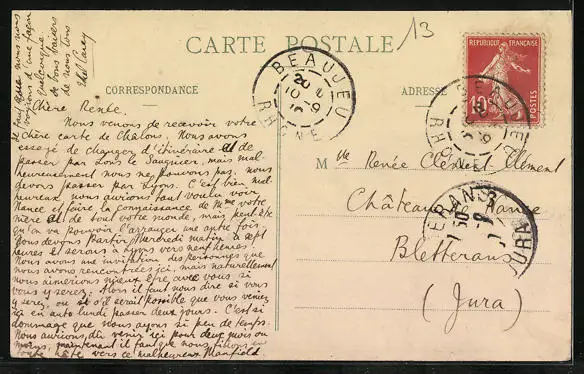 13
CARTE POSTALE
CORRESPONDANCE
ADRESSE
REPUBLIQUE FRANÇAISE
10
POSTES
BEAUJEU
RHONE
BEAUJEU
RHONE
JURA
il faut que nous nous
voyions d'une façon
quelconque
de bons baisers
de nous tous
Chère Renée.
Nous venons de recevoir votre
chère carte de Chalons. Nous avons
essayé de changer d'itinéraire et de
passer par Lons le Saugnier, mais mal-
heureusement nous ne pouvons pas. nous
devons passer par Lyons. C'est bien mal-
heureux nous aurions tant voulu voir
Nance et faire la connaissance de Mme votre
mère et de tout votre monde, mais peut être
qu'on va pouvoir l'arranger une autre fois.
nous devons partir Mercredi matin à sept
heures et serons à Lyons vers neuf heures.
Nous avons une invitation des personnes que
nous avons rencontrées ici, mais naturellement
nous aimerions mieux être avec vous si
vous y serez. Alors il faut nous dire si vous
y serez, ou s'il serait possible que vous veniez
ici en auto lundi passer deux jours. C'est si
dommage que nous ayons si peu de temps.
Nous aurions dû venir ici pour deux mois au
moins, maintenant il faut que nous filions en
toute hâte vers ce malheureux Mansfield
Mlle Renée Clément-Clément
Château Nance
Bletterans
(Jura)